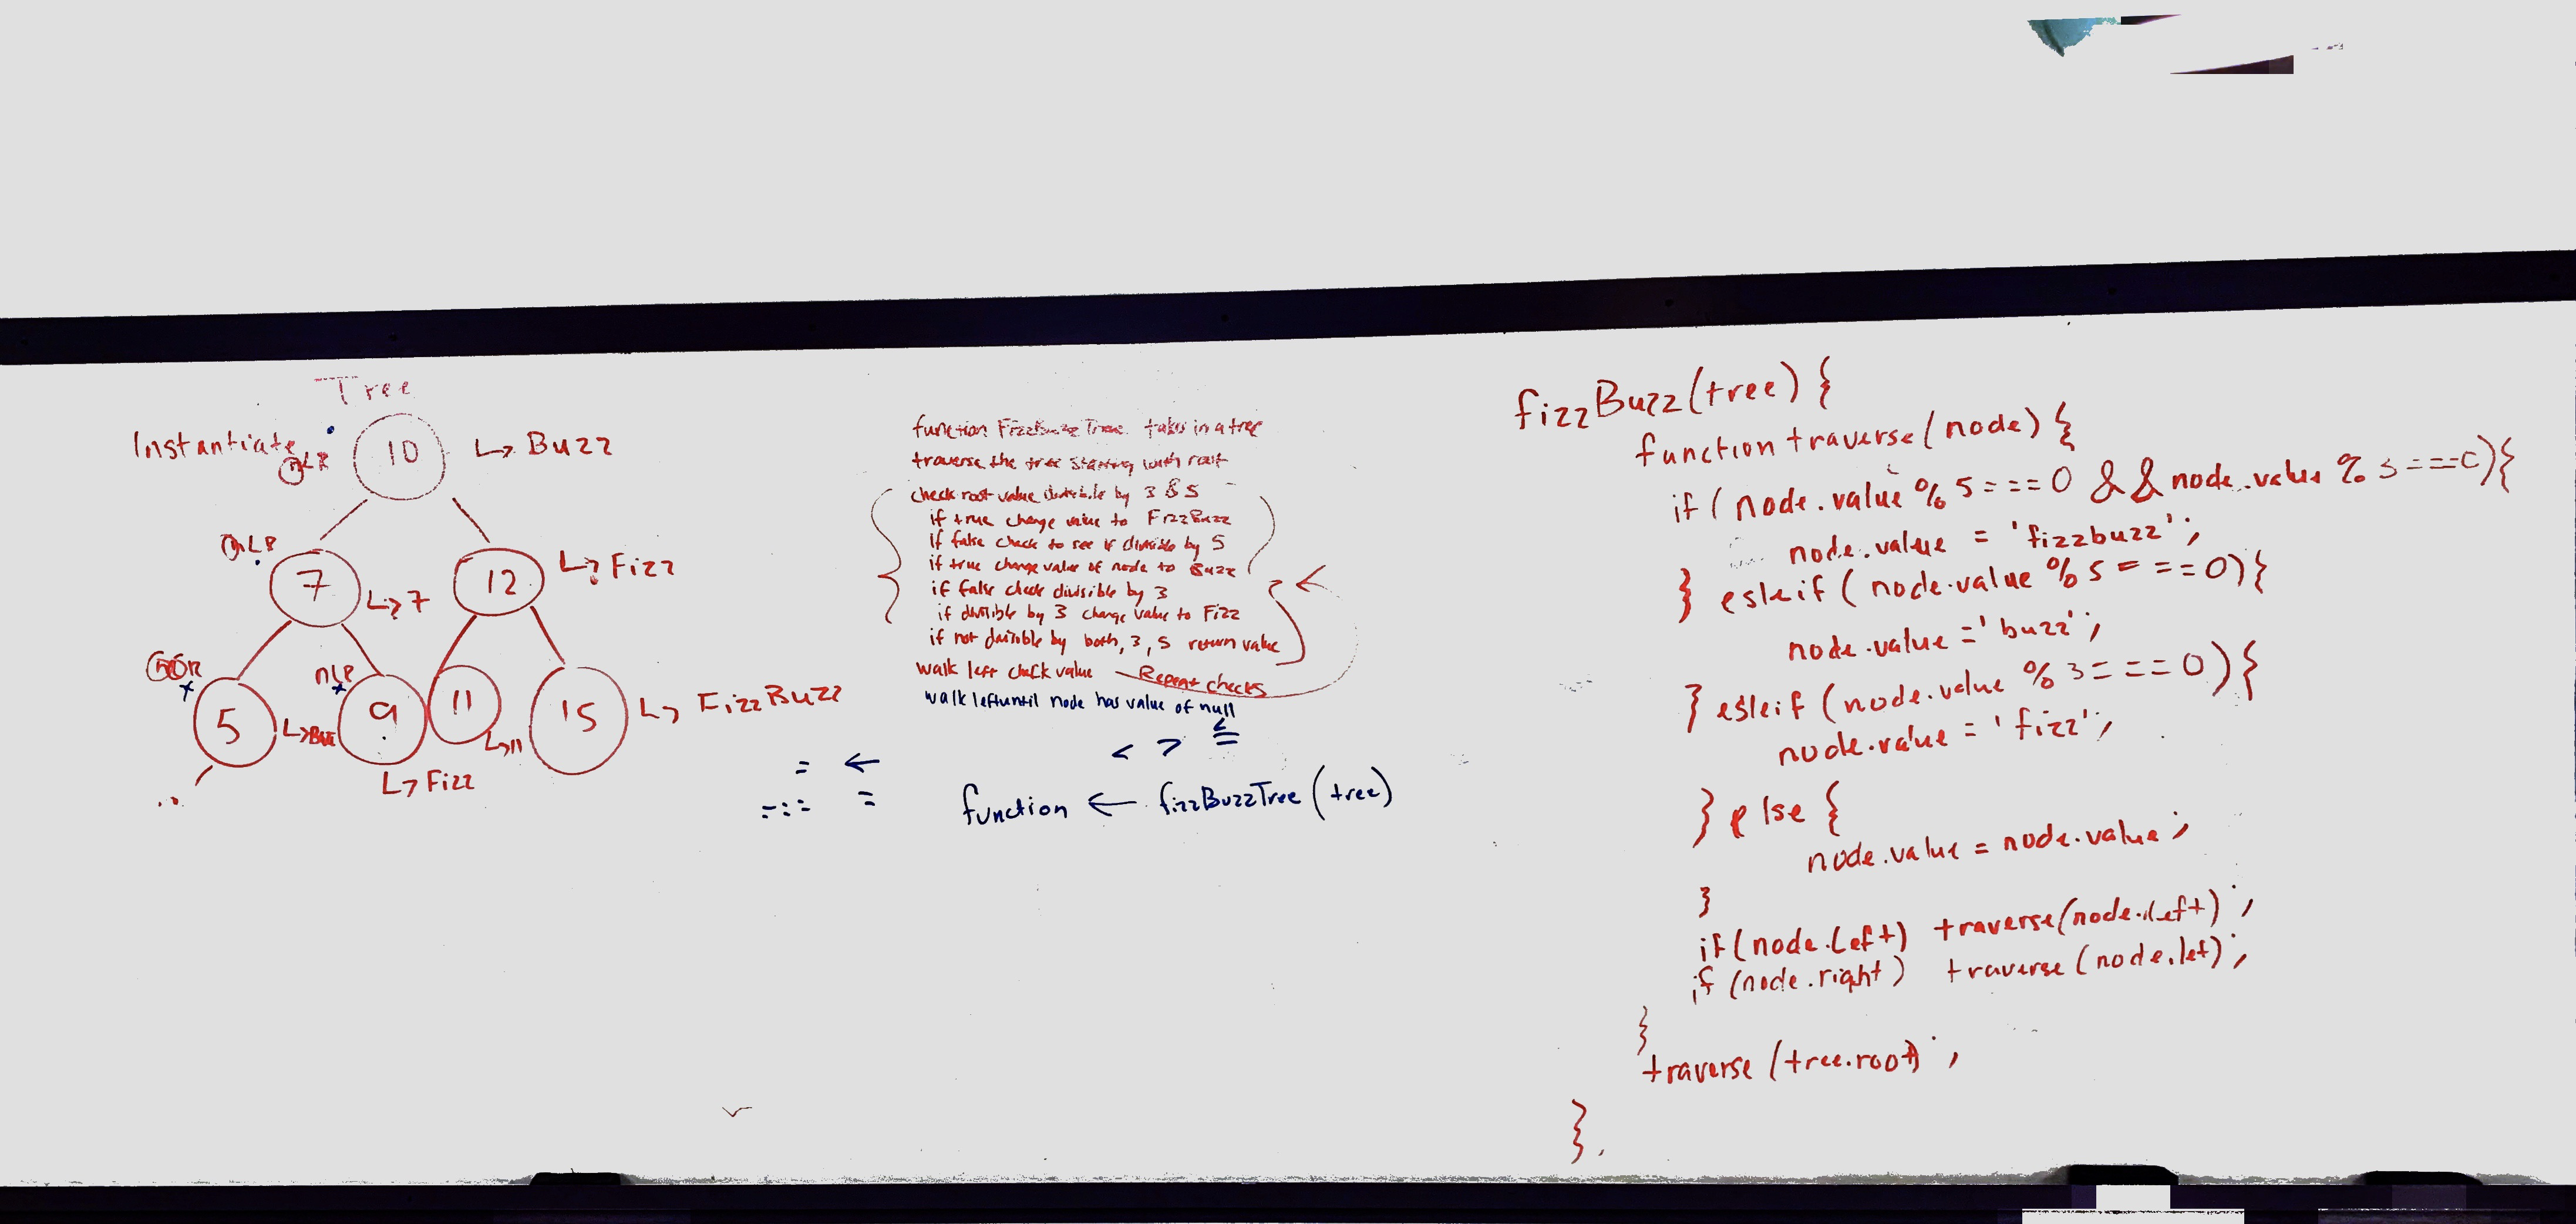 Tree
Instantiate
nLR
10
L> Buzz
nLR
7
L> 7
12
L> Fizz
5
L> Buz
nLR
9
L> Fizz
11
L> 11
15
L> FizzBuzz
function FizzBuzzTree takes in a tree
traverse the tree starting with root
check root value divisible by 3 & 5
if true change value to FizzBuzz
if false check to see if divisible by 5
if true change value of node to Buzz
if false check divisible by 3
if divisible by 3 change value to Fizz
if not divisible by both, 3, 5 return value
walk left check value Repeat checks
walk left until node has value of null
< > ≤
= ←
=== =
function ← fizzBuzzTree (tree)
fizzBuzz(tree) {
function traverse(node) {
if ( node.value % 5 === 0 && node.value % 3 === 0){
node.value = 'fizzbuzz';
} esleif ( node.value % 5 === 0){
node.value = 'buzz';
} esleif (node.value % 3 === 0){
node.value = 'fizz';
} else {
node.value = node.value;
}
if (node.left) traverse(node.left);
if (node.right) traverse (node.let);
}
traverse (tree.root);
}.